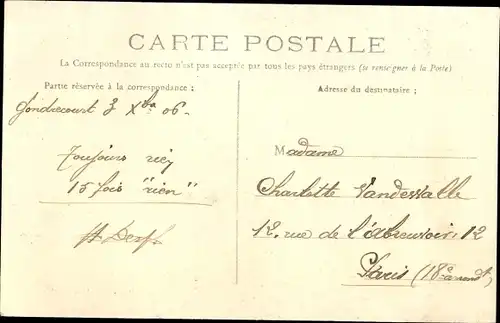 CARTE POSTALE
La Correspondance au recto n'est pas acceptée par tous les pays étrangers (se renseigner à la Poste)
Partie réservée à la correspondance :
Gondrecourt 3 Xbre 06.
Toujours rien
15 fois "rien"
Adresse du destinataire :
Madame
Charlotte Vandewalle
12, rue de l'abreuvoir, 12
Paris (18e arrondt)